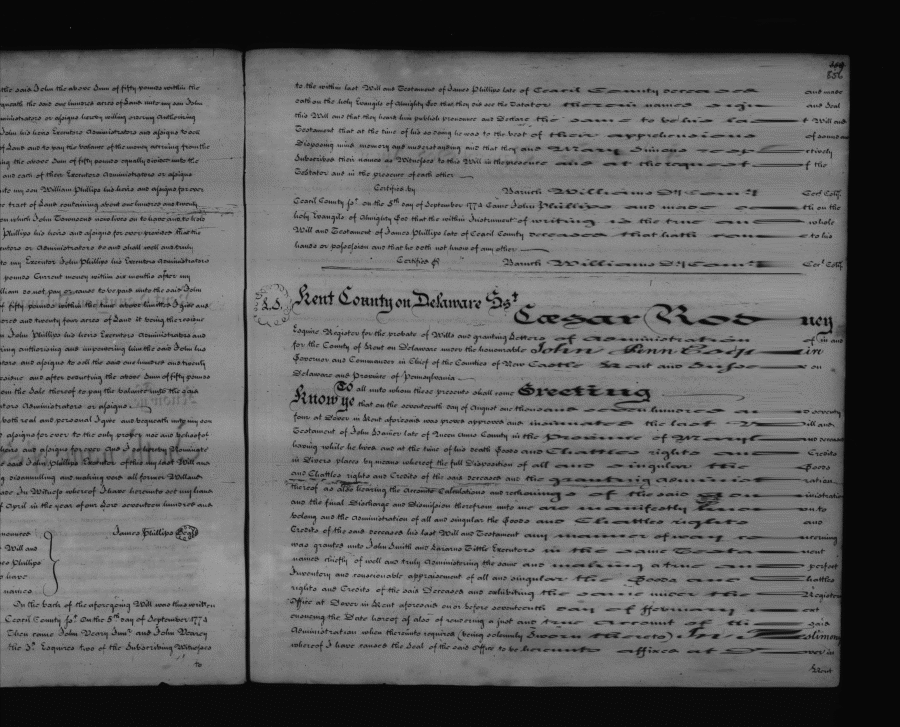 the said John the above Sum of fifty pounds within the
queath the said one hundred acres of Land unto my son John
ministrators or assigns hereby willing ordering Authorizing
John his heirs Executors Administrators and assigns to sell
of Land and to pay the balance of the money arrising from the
ing the above Sum of fifty pounds equally divided unto the
and each of their Executors Administrators or assigns
unto my son William Phillips his heirs and assigns for ever
tract of Land containing about one hundred and twenty
on which John Townsend now lives on to have and to hold
Phillips his heirs and assigns for ever provided that the
cutors or Administrators do and shall well and truly
to my Executor John Phillips his heirs Executors Administrators
pounds Current money within six months after my
lliam do not pay or cause to be paid unto the said John
of fifty pounds within the time above limitted I give and
dred and twenty four acres of Land it being the residue
John Phillips his heirs Executors Administrators and
ing authorising and impowering him the said John his
tors and assigns to sell the said one hundred and twenty
and after deducting the above Sum of fifty pounds
from the Sale thereof to pay the balance unto the said
tors Administrators or assigns
both real and personal I give and bequeath unto my son
assigns for ever to the only proper use and behoof of
heirs and assigns for ever And I do hereby Nominate
said John Phillips Executor of this my last Will and
disannulling and making void all former Wills and
In Witness whereof I have hereunto set my hand
of April in the year of our Lord seventeen hundred and
James Phillips Seal
Will and
Phillips
have
names
On the back of the aforegoing Will was thus written
Ceacil County ss. On the 5th day of September 1774
Then came John Veary Junr and John Veazey
the 3d Esquires two of the Subscribing Witnesses
to
856
to the within last Will and Testament of James Phillips late of Ceacil County deceased and made
oath on the holy Evangels of Almighty God that they did see the Testator therein named sign and Seal
this Will and that they heard him publish pronounce and Declare the same to be his last Will and
Testament that at the time of his so doing he was to the best of their apprehensions of sound and
Disposing mind memory and understanding and that they and Mary Simons respectively
Subscribed their names as Witnesses to this Will in the presence and at the request of the
Testator and in the presence of each other
Certified by Baruch Williams Dy Comy Cecl Coty
Ceacil County ss. on the 5th day of September 1774 Came John Phillips and made oth on the
holy Evangels of Almighty God that the within Instrument of writing is the true and whole
Will and Testament of James Phillips late of Ceacil County deceased that hath come to his
hands or possession and that he doth not know of any other
Certified p Baruch Williams Dy Comy Cecl Coty
L.S. Kent County on Delaware Ss.t
Cæsar Rodney
Esquire Register for the probate of Wills and granting Letters of Administration in and
for the County of Kent on Delaware under the honourable John Penn Esqr
Governor and Commander in Chief of the Counties of New Castle Kent and Sussex on
Delaware and Province of Pennsylvania
To all unto whom these presents shall come Greeting
Know ye that on the seventeenth day of August one thousand seven hundred and seventy
four at Dover in Kent aforesaid was proved approved and insinuated the last Will and
Testament of John late of Queen Anns County in the Province of Maryland deceased
having while he lived and at the time of his death Goods and Chattles rights and Credits
in Divers places by means whereof the full Disposition of all and singular the Goods
and Chattles rights and Credits of the said deceased and the granting administration
thereof as also hearing the Accounts Calculations and reckonings of the said Administration
and the final Discharge and Dismission therefrom unto me are manifestly known to
belong and the Administration of all and singular the Goods and Chattles rights and
Credits of the said deceased his last Will and Testament any manner of way concerning
was granted unto John Smith and Tittle Executors in the same Testament
named chiefly of well and truly Administering the same and making a true and perfect
Inventory and conscionable appraisement of all and singular the Goods and Chattles
rights and Credits of the said Deceased and exhibiting the same under the Register
Office at Dover in Kent aforesaid on or before seventeenth day of ffebruary next
ensueing the Date hereof as also of rendering a just and true account of the said
Administration when thereunto required (being solemnly Sworn thereto) In Testimony
whereof I have caused the Seal of the said Office to be hereunto affixed at Dover in
Kent